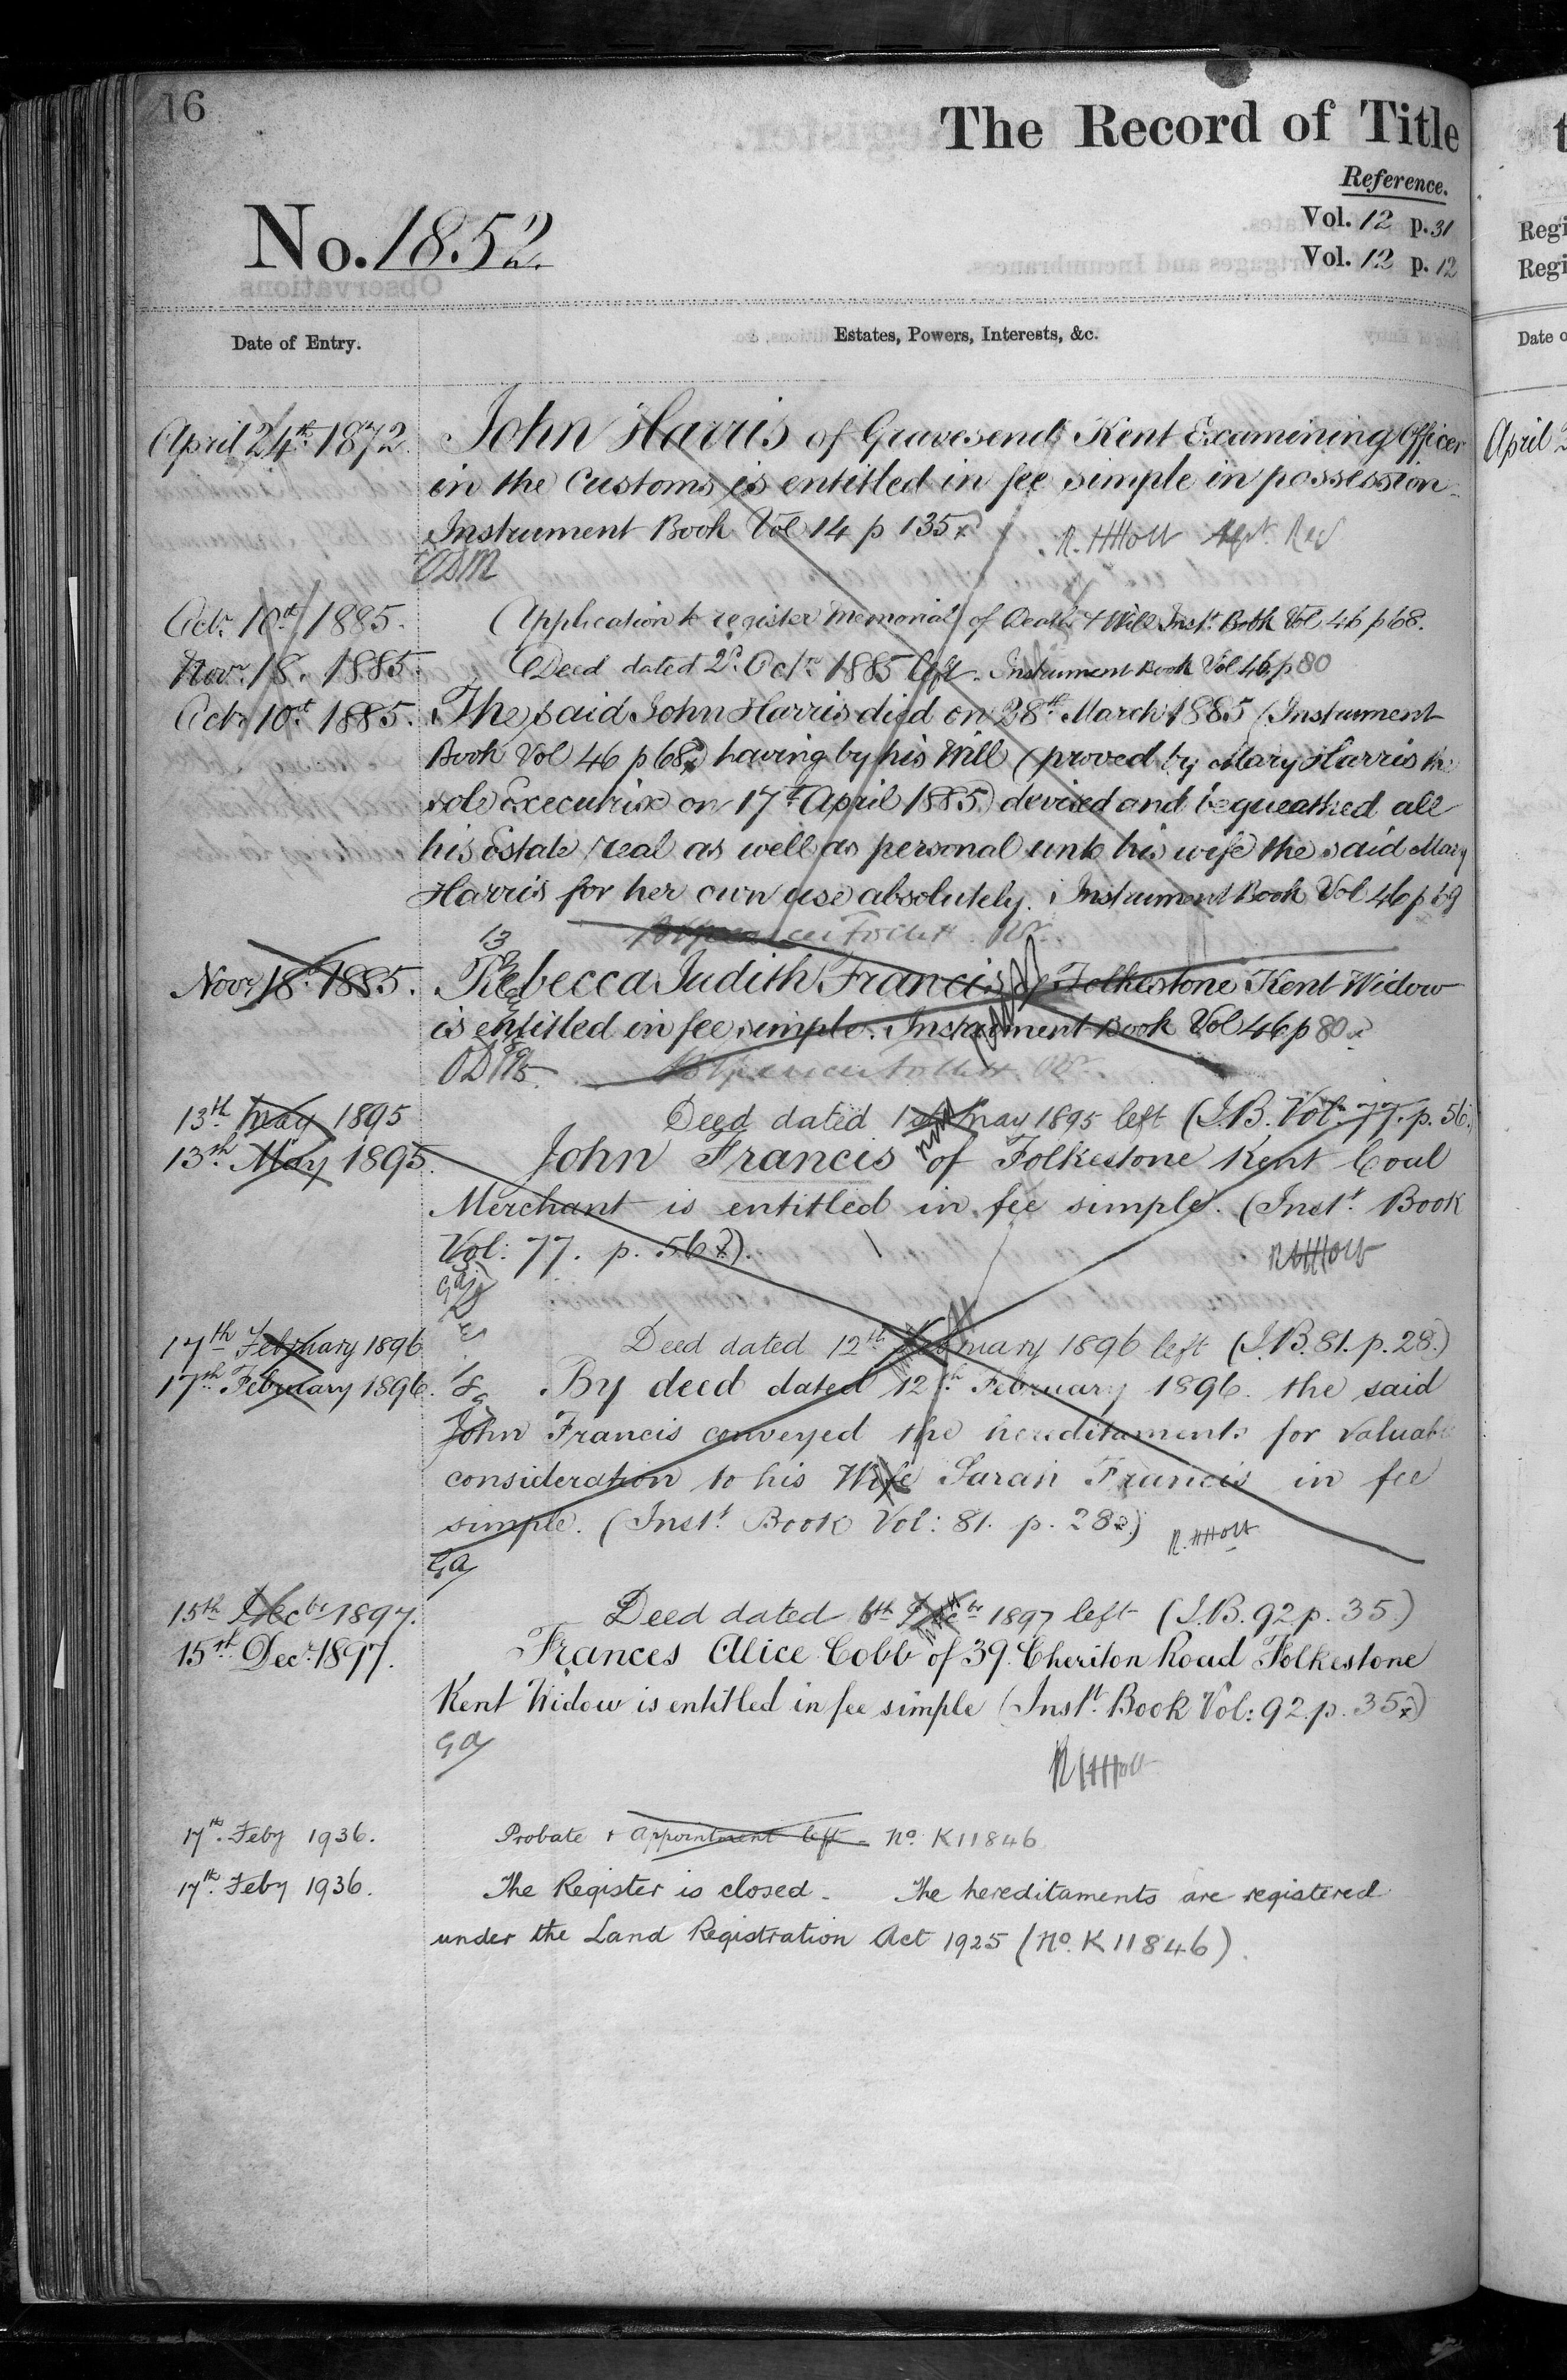 16
The Record of Title
Reference.
No. 1852.
Vol. 12 p. 31
Vol. 12 p. 12
Regi
Regi
Date of Entry.
Estates, Powers, Interests, &c.
Date o
April 24th 1872. John Harris of Gravesend Kent Examining Officer
April 2
in the Customs is entitled in fee simple in possession
Instrument Book Vol 14 p 135
R. H Holt Asst. Reg
Octr. 10th 1885. Application to register Memorial of Death & Will Inst. Book Vol 46 p 68.
Novr. 18. 1885. Deed dated 2d. Octr. 1885 left. Instrument Book Vol 46 p 80
Octr. 10th 1885. The said John Harris died on 28th March 1885 (Instrument
Book Vol 46 p 68) having by his Will (proved by Mary Harris the
sole Executrix on 17th April 1885) devised and bequeathed all
his Estate real as well as personal unto his wife the said Mary
Harris for her own use absolutely. Instrument Book Vol 46 p 69
Novr 18th 1885. Rebecca Judith Francis of Folkestone Kent Widow
is entitled in fee simple. Instrument Book Vol 46 p 80
13th May 1895 Deed dated 1st May 1895 left (I.B. Vol. 77. p. 56.)
13th May 1895. John Francis of Folkestone Kent Coal
Merchant is entitled in fee simple. (Inst. Book
Vol: 77. p. 56).
R H Holt
17th February 1896 Deed dated 12th February 1896 left (I.B. 81. p. 28.)
17th February 1896. By deed dated 12th February 1896. the said
John Francis conveyed the hereditaments for valuable
consideration to his Wife Sarah Francis in fee
simple. (Inst. Book Vol: 81. p. 28)
R. H Holt
GA
15th Decbr 1897. Deed dated 6th Decbr 1897 left (I.B. 92 p. 35.)
15th Decr 1897. Frances Alice Cobb of 39. Cheriton Road Folkestone
Kent Widow is entitled in fee simple (Inst. Book Vol: 92. p. 35)
GA
R H Holt
17th. Feby 1936. Probate & Appointment left - No. K11846
17th. Feby 1936. The Register is closed - The hereditaments are registered
under the Land Registration Act 1925 (No. K 11846).